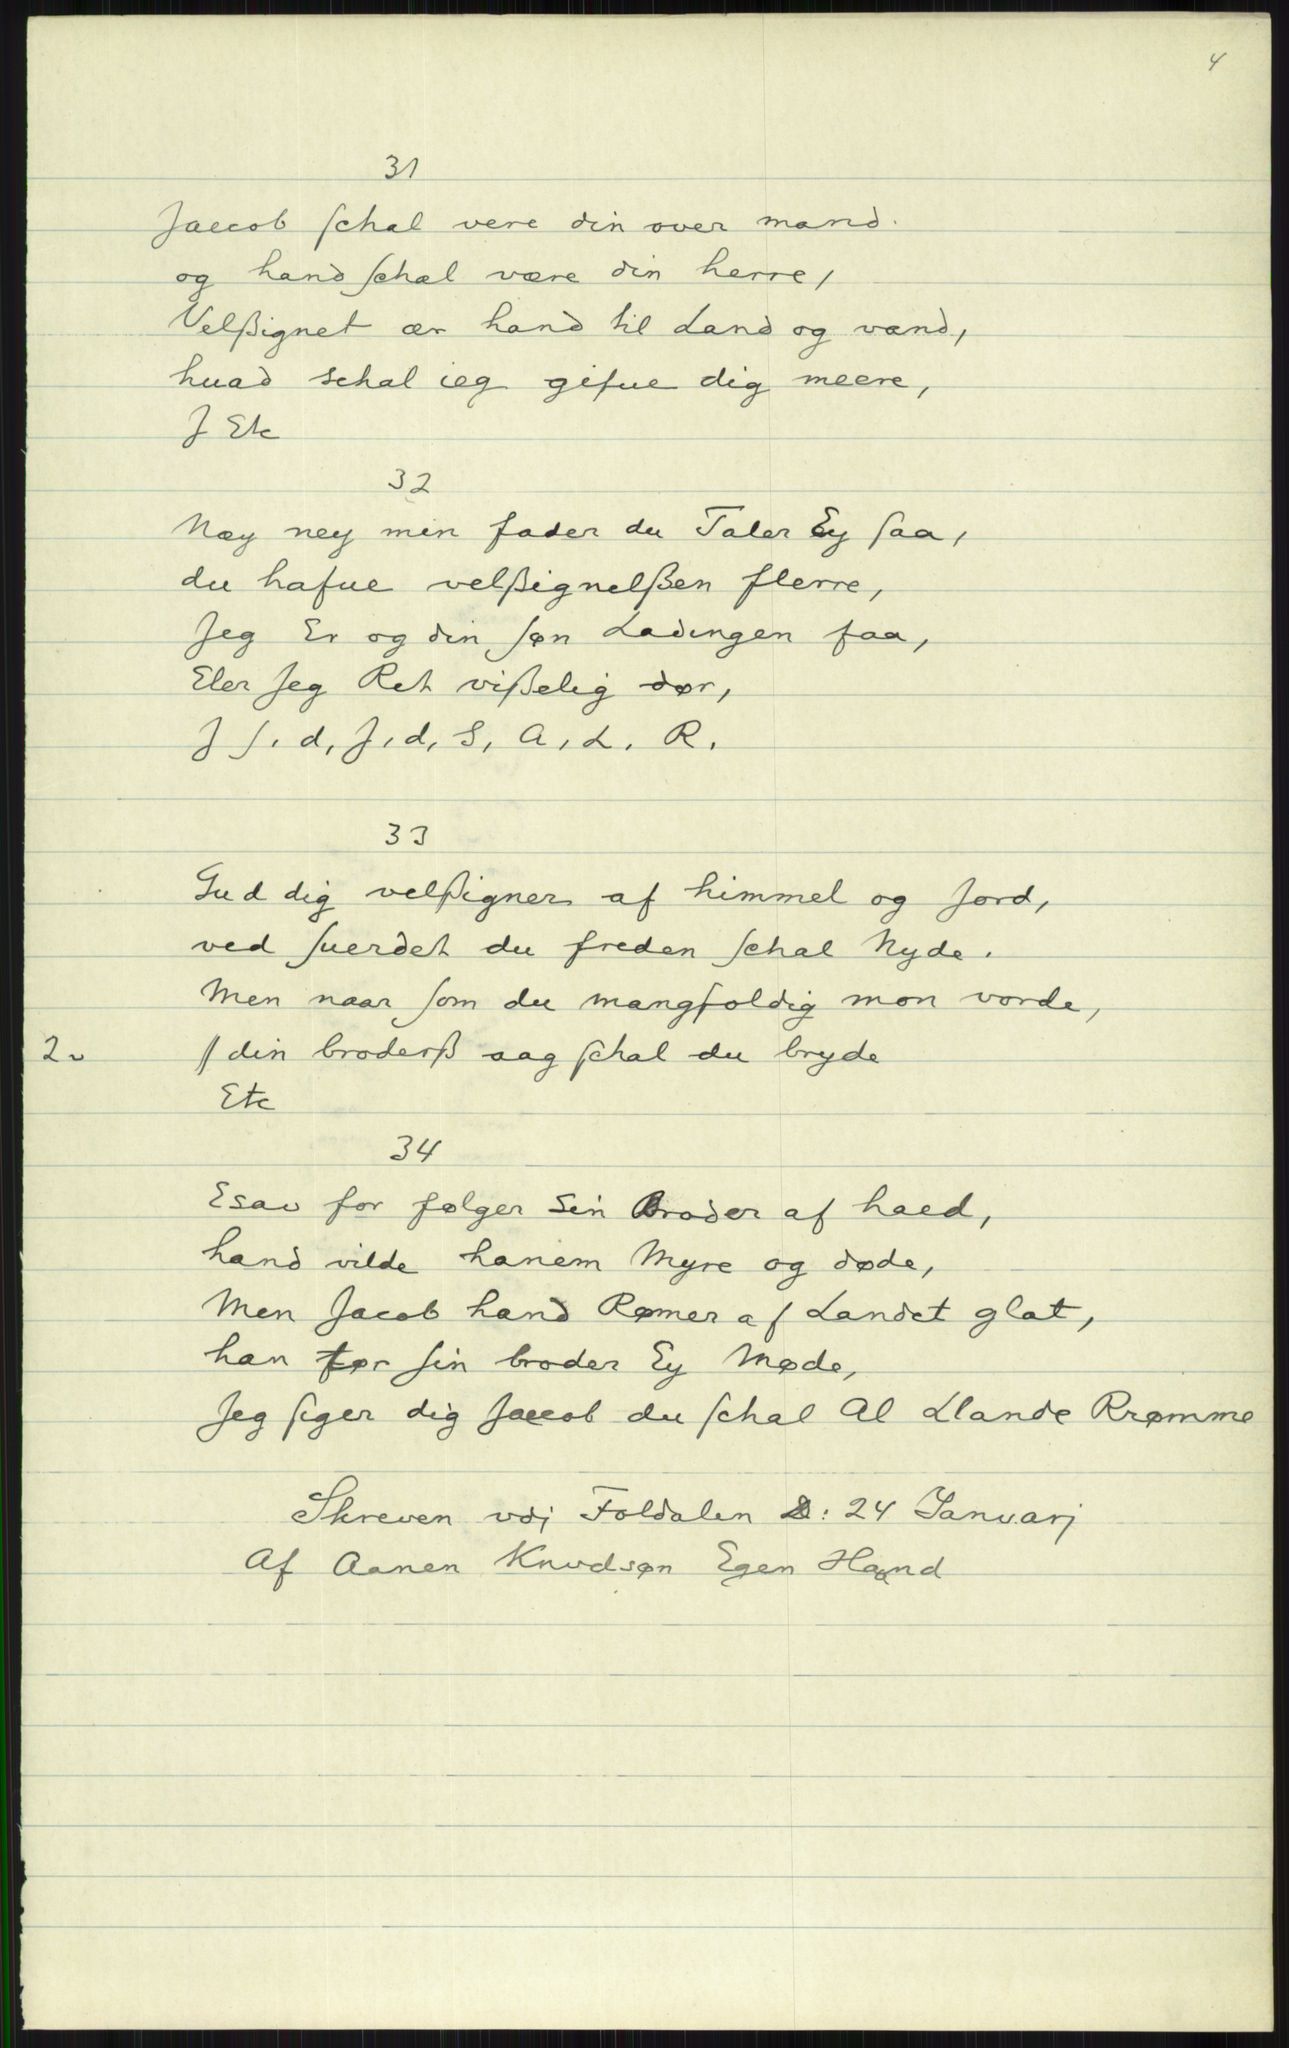 4
31
Jaecob ſchal vere din over mand.
og hand ſchal være din herre,
Velßignet ær hand til Land og vand,
huad schal ieg gifue dig meere,
J Etc
32
Næy ney min fader du Taler Ey ſaa,
du hafue velßignelßen flerre,
Jeg Er og din ſøn Ladingen faa,
Eler Jeg Ret vißelig dør,
J ſ, d, J, d, S, A, L. R.
33
Gud dig velßigner af himmel og Jord,
ved ſuerdet du freden ſchal Nyde.
Men naar ſom du mangfoldig mon vorde,
2v // din broderß aag ſchal du bryde
Etc
34
Esav for følger Sin Broder af haed,
hand vilde hanem Myre og døde,
Men Jacob hand Rømer af Landet glat,
han tør ſin broder Ey Møde,
Jeg ſiger dig Jaecob du ſchal Al Llande Rrømme
Skreven vdj Foldalen D: 24 Januarj
Af Aanen Knudsøn Egen Haand